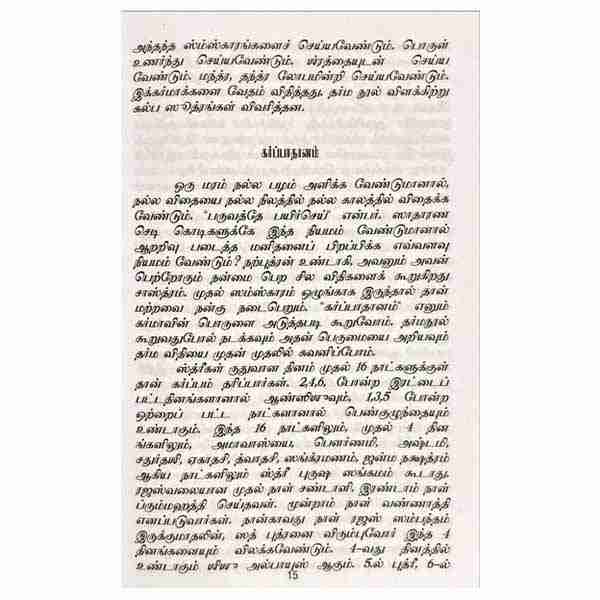 அந்தந்த ஸம்ஸ்காரங்களைச் செய்யவேண்டும். பொருள்
உணர்ந்து செய்யவேண்டும். ஶ்ரத்தையுடன் செய்ய
வேண்டும். மந்த்ர, தந்த்ர லோபமின்றி செய்யவேண்டும்.
இக்கர்மாக்களை வேதம் விதித்தது. தர்ம நூல் விளக்கிற்று
கல்ப ஸூத்ரங்கள் விவரித்தன.
கர்ப்பாதானம்
ஒரு மரம் நல்ல பழம் அளிக்க வேண்டுமானால்,
நல்ல விதையை நல்ல நிலத்தில் நல்ல காலத்தில் விதைக்க
வேண்டும். "பருவத்தே பயிர்செய்" என்பர். ஸாதாரண
செடி கொடிகளுக்கே இந்த நியமம் வேண்டுமானால்
ஆறறிவு படைத்த மனிதனைப் பிறப்பிக்க எவ்வளவு
நியமம் வேண்டும்? நற்புத்ரன் உண்டாகி, அவனும் அவன்
பெற்றோரும் நன்மை பெற சில விதிகளைக் கூறுகிறது
சாஸ்த்ரம். முதல் ஸம்ஸ்காரம் ஒழுங்காக இருந்தால் தான்
மற்றவை நன்கு நடைபெறும். "கர்ப்பாதானம்" எனும்
கர்மாவின் பொருளை அடுத்தபடி கூறுவோம். தர்மநூல்
கூறுவதுபோல் நடக்கவும் அதன் பெருமையை அறியவும்
தர்ம விதியை முதன் முதலில் கவனிப்போம்.
ஸ்த்ரீகள் ருதுவான தினம் முதல் 16 நாட்களுக்குள்
தான் கர்ப்பம் தரிப்பார்கள். 2,4,6, போன்ற இரட்டைப்
பட்டதினங்களானால் ஆண்ஶிஶுவும், 1,3,5 போன்ற
ஒற்றைப் பட்ட நாட்களானால் பெண்குழந்தையும்
உண்டாகும். இந்த 16 நாட்களிலும், முதல் 4 தின
ங்களிலும், அமாவாஸ்யை, பௌர்ணமி, அஷ்டமி,
சதுர்தஶி, ஏகாதசி, த்வாதசி, ஸங்க்ரமணம், ஜன்ம நக்ஷத்ரம்
ஆகிய நாட்களிலும் ஸ்த்ரீ புருஷ ஸங்கமம் கூடாது.
ரஜஸ்வலையான முதல் நாள் சண்டாளி. இரண்டாம் நாள்
ப்ரும்மஹத்தி செய்தவள். மூன்றாம் நாள் வண்ணாத்தி
எனப்படுவார்கள். நான்காவது நாள் ரஜஸ் ஸம்பந்தம்
இருக்குமாதலின், ஸத் புத்ரனை விரும்புவோர் இந்த 4
தினங்களையும் விலக்கவேண்டும். 4-வது தினத்தில்
உண்டாகும் ஶிஶு அல்பாயுஸ் ஆகும். 5.ல் புத்ரீ, 6-ல்
15